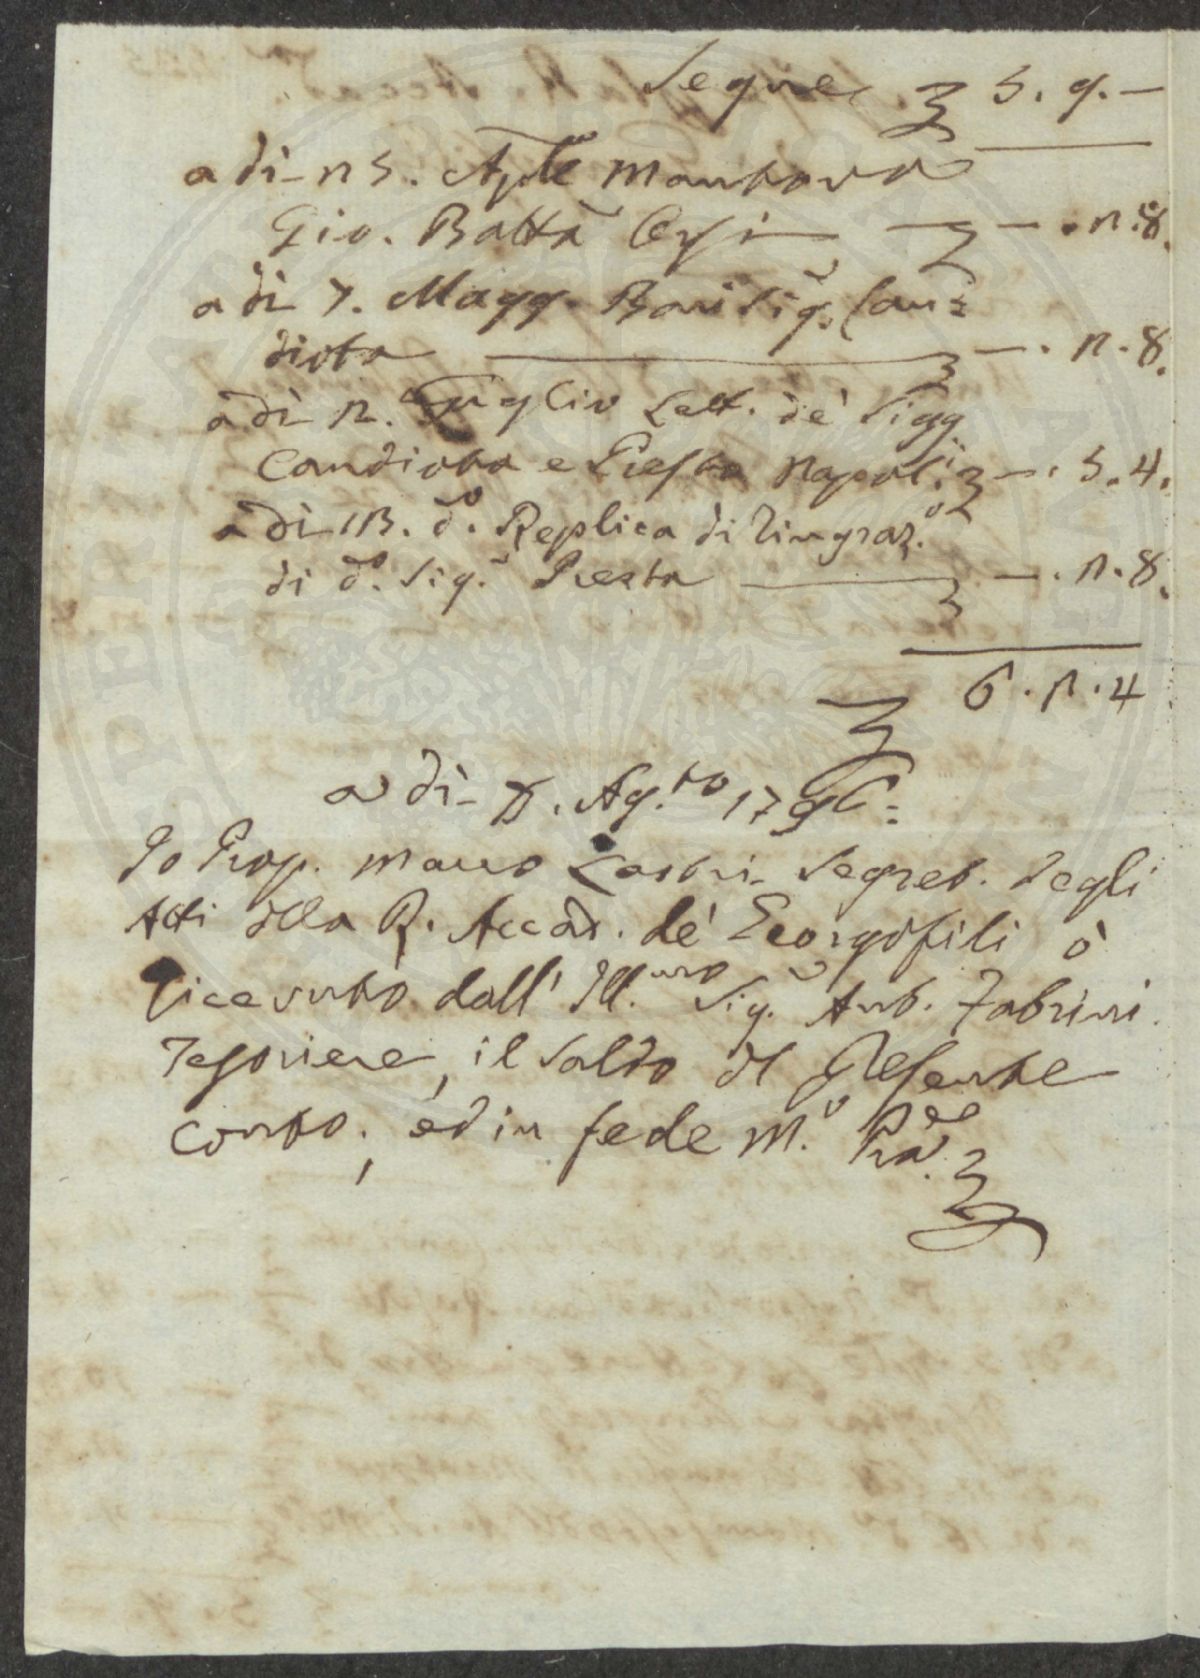 Segue 5. 9. —
a dì 15. Aple Mantova
Gio. Batta — . 1. 8.
a dì 7. Magg. Bari Sig. Can=
diota — . 1. 8.
a dì 12. Luglio Lett. de' Sigg.
Candiota e Presta Napoli — . 5. 4.
a dì 13. do. Replica di ringraz.o
di do. Sig.r Presta — . 1. 8.
6. 1. 4
a dì Ag.to 1796=
Io Prop. Marco Lastri Segret. degli
Atti della R. Accad. de' Georgofili ò
ricevuto dall' Ill.mo Sig.r Ant. Fabrini
Tesoriere, il saldo del presente
conto, ed in fede M.o Pa.